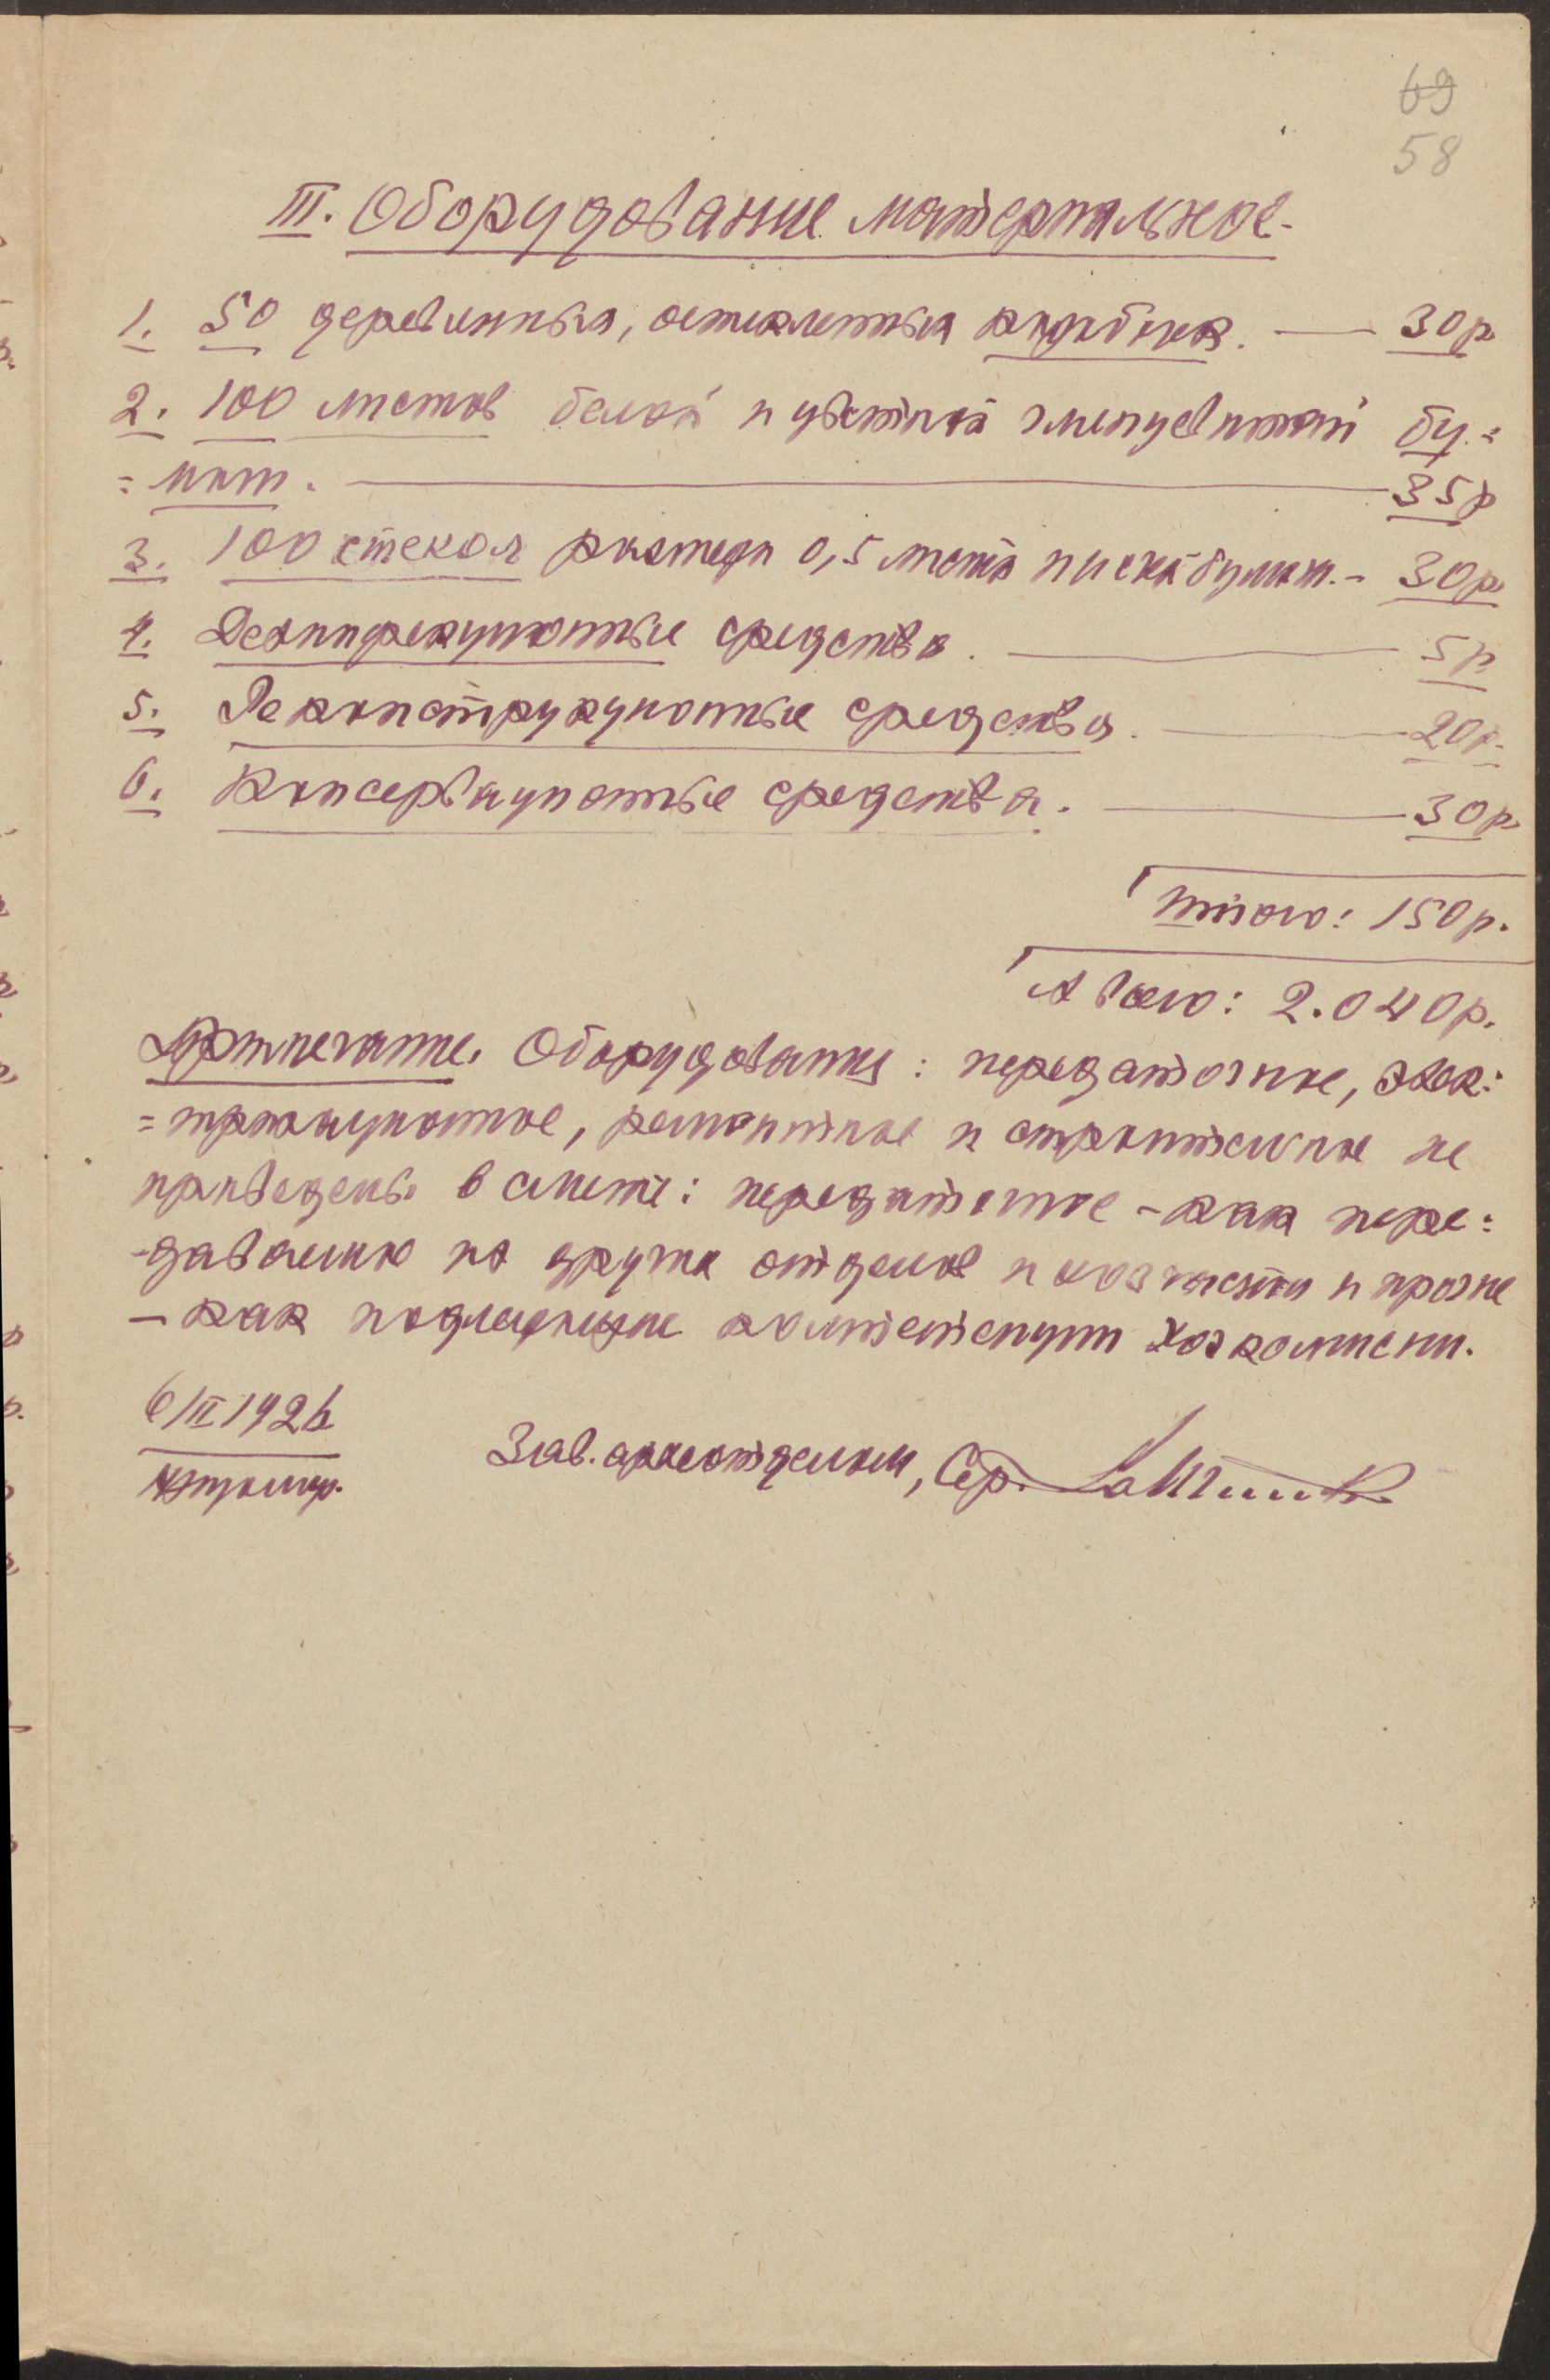 69
58
III. Оборудование материальное.
1. 50 деревянных, остекленных коробок. — 30р.
2. 100 листов белой и цветной бу=
=маги. — 35р
3. 100 стекол размера 0,5 листа писчей бумаги. - 30р.
4. Дезинфекционные средства. — 5р.
5. Реконструкционные средства. — 20р.
6. Консервационные средства. — 30р.
Итого: 150р.
А всего: 2.040р.
Примечание. Оборудования: передаточное,
ремонтное и строительное не
приведены в смете: передаточное - как пере=
на других отделов и прочие
- как подлежащие компетенции Хозкомиссии.
6/III 1926
Зав. археоотделом, Сер.